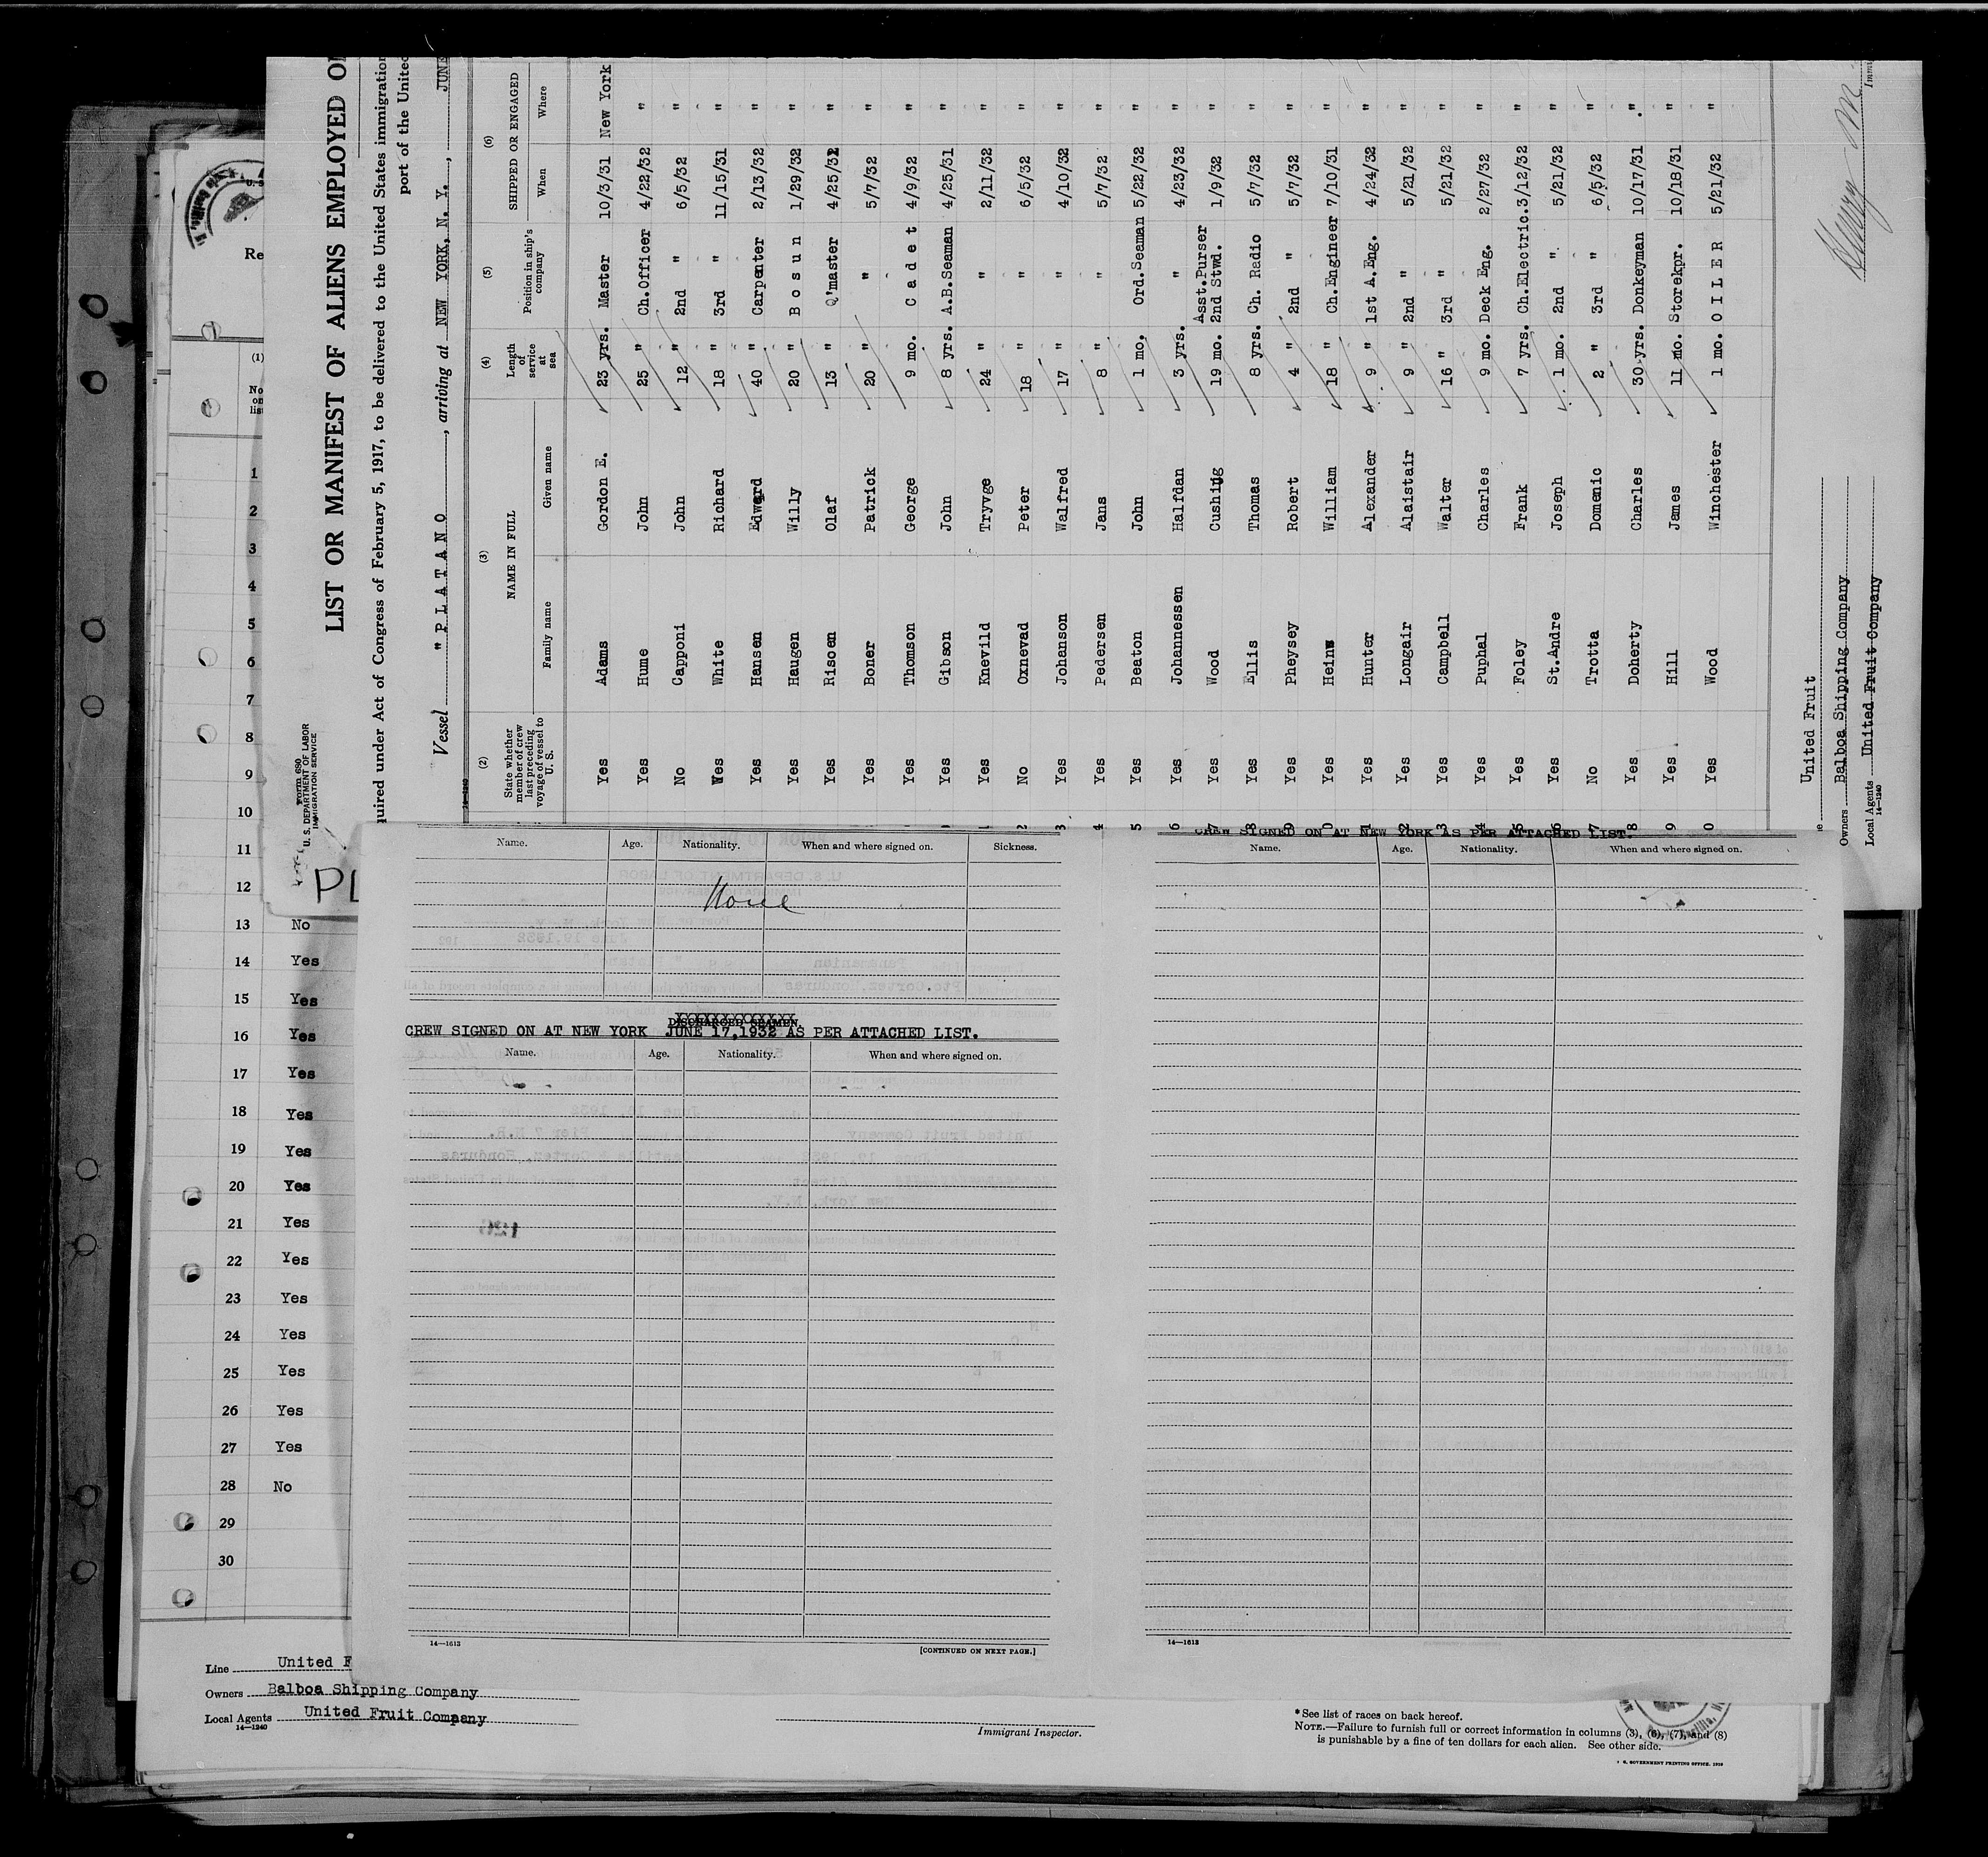 Form 680
U. S. DEPARTMENT OF LABOR
IMMIGRATION SERVICE
LIST OR MANIFEST OF ALIENS EMPLOYED
quired under Act of Congress of February 5, 1917, to be delivered to the United States immigration
port of the United
Vessel " P L A T A N O , arriving at NEW YORK, N. Y. , JUNE
(2) (3) (4) (5) (6)
State whether member of crew last preceding voyage of vessel to U. S. NAME IN FULL Length of service at sea Position in ship's company SHIPPED OR ENGAGED
Family name Given name When Where
Yes Adams Gordon E. 23 yrs. Master 10/3/31 New York
Yes Hume John 25 " Ch.Officer 4/22/32 "
No Capponi John 12 " 2nd " 6/5/32 "
Yes White Richard 18 " 3rd " 11/15/31 "
Yes Hansen Edward 40 " Carpenter 2/13/32 "
Yes Haugen Willy 20 " B o s u n 1/29/32 "
Yes Risoen Olaf 13 " Q'master 4/25/32 "
Yes Boner Patrick 20 " " 5/7/32 "
Yes Thomson George 9 mo. C a d e t 4/9/32 "
Yes Gibson John 8 yrs. A.B.Seaman 4/25/31 "
1 Yes Knevild Tryvge 24 " " 2/11/32 "
2 No Oxnevad Peter 18 " " 6/5/32 "
3 Yes Johanson Walfred 17 " " 4/10/32 "
4 Yes Pedersen Jans 8 " " 5/7/32 "
5 Yes Beaton John 1 mo. Ord.Seaman 5/22/32 "
6 Yes Johannessen Halfdan 3 yrs. " 4/23/32 "
7 Yes Wood Cushing 19 mo. Asst.Purser 2nd Stwd. 1/9/32 "
8 Yes Ellis Thomas 8 yrs. Ch. Radio 5/7/32 "
9 Yes Pheysey Robert 4 " 2nd " 5/7/32 "
0 Yes Heins William 18 " Ch.Engineer 7/10/31 "
1 Yes Hunter Alexander 9 " 1st A.Eng. 4/24/32 "
2 Yes Longair Alaistair 9 " 2nd " 5/21/32 "
3 Yes Campbell Walter 16 " 3rd " 5/21/32 "
4 Yes Puphal Charles 9 mo. Deck Eng. 2/27/32 "
5 Yes Foley Frank 7 yrs. Ch.Electric. 3/12/32 "
6 Yes St.Andre Joseph 1 mo. 2nd " 5/21/32 "
7 No Trotta Domenic 2 " 3rd " 6/5/32 "
8 Yes Doherty Charles 30 yrs. Donkeyman 10/17/31 "
9 Yes Hill James 11 mo. Storekpr. 10/18/31 "
0 Yes Wood Winchester 1 mo. O I L E R 5/21/32 "
United Fruit
Owners Balboa Shipping Company
Local Agents United Fruit Company
14—1240
Re
(1)
No on list
1
2
3
4
5
6
7
8
9
10
11
12
13 No
14 Yes
15 Yes
16 Yes
17 Yes
18 Yes
19 Yes
20 Yes
21 Yes
22 Yes
23 Yes
24 Yes
25 Yes
26 Yes
27 Yes
28 No
29
30
PL
Name. Age. Nationality. When and where signed on. Sickness.
None
DISCHARGED SEAMEN.
XXXXXXXXXXXXX
CREW SIGNED ON AT NEW YORK JUNE 17,1932 AS PER ATTACHED LIST.
Name. Age. Nationality. When and where signed on.
14—1613
[CONTINUED ON NEXT PAGE.]
CREW SIGNED ON AT NEW YORK AS PER ATTACHED LIST.
Name. Age. Nationality. When and where signed on.
14—1613
Line United F
Owners Balboa Shipping Company
Local Agents United Fruit Company
14—1240
Immigrant Inspector.
* See list of races on back hereof.
NOTE.—Failure to furnish full or correct information in columns (3), (6), (7), and (8)
is punishable by a fine of ten dollars for each alien. See other side.
U. S. GOVERNMENT PRINTING OFFICE